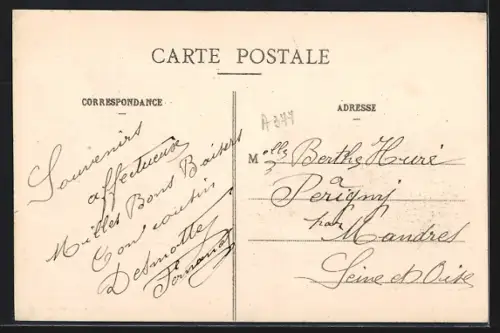 CARTE POSTALE
CORRESPONDANCE
Souvenirs
affectueux
Milles Bons Baisers
Ton cousin
Desmottes
Fernand
A 377
ADRESSE
Melle Berthe Huré
a
Perigny
par
Mandres
Seine et Oise